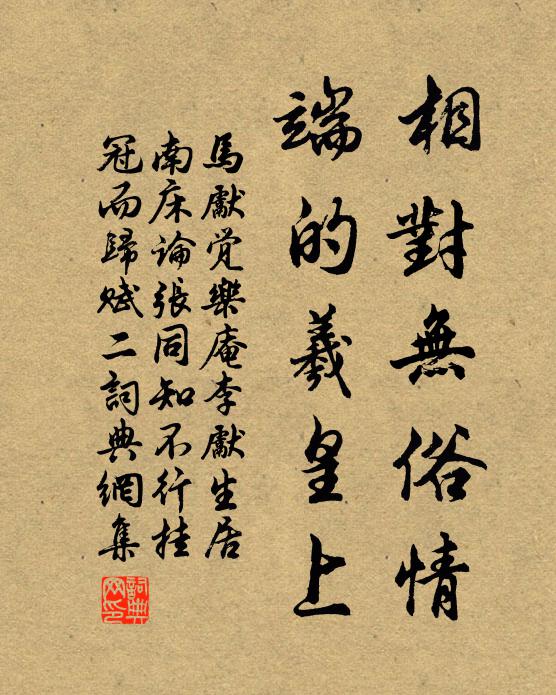 相對無俗情
端的羲皇上
馬獻覚樂庵李獻生居
南床論張同知不行挂
冠而歸賦二詞典網集
詞典网印